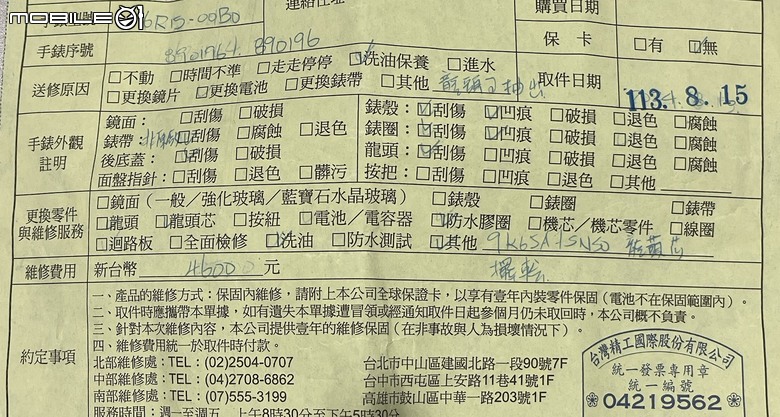 mobile01
連絡住址
購買日期
6R15-00B0
手錶序號 8901764. 890196
保　卡 □有 □無
送修原因 □不動 □時間不準 □走走停停 □洗油保養 □進水
□更換鏡片 □更換電池 □更換錶帶 □其他
取件日期 113. 8. 15
手錶外觀註明
鏡面：□刮傷 □破損
錶帶： □刮傷 □腐蝕 □退色
後底蓋：□刮傷 □破損
面盤指針：□刮傷 □髒污
錶殼：□刮傷 □凹痕 □破損 □退色 □腐蝕
錶圈：□刮傷 □凹痕 □破損 □退色 □腐蝕
龍頭：□刮傷 □凹痕 □破損 □退色 □腐蝕
按把：□刮傷 □凹痕 □退色 □其他
更換零件與維修服務
□鏡面（一般／強化玻璃／藍寶石水晶玻璃） □錶殼 □錶圈 □錶帶
□龍頭 □龍頭芯 □按鈕 □電池／電容器 □防水膠圈 □機芯／機芯零件 □線圈
□迴路板 □全面檢修 □洗油 □防水測試 □其他
維修費用 新台幣 元
約定事項
一、產品的維修方式：保固內維修，請附上本公司全球保證卡，以享有壹年內裝零件保固（電池不在保固範圍內）。
二、取件時應攜帶本單據，如有遺失本單據遭冒領或經通知取件日起參個月仍未取回時，本公司概不負責。
三、針對本次維修內容，本公司提供壹年的維修保固（在非事故與人為損壞情況下）。
四、維修費用統一於取件時付款。
北部維修處：TEL：(02)2504-0707 台北市中山區建國北路一段90號7F
中部維修處：TEL：(04)2708-6862 台中市西屯區上安路11巷41號1F
南部維修處：TEL：(07)555-3199 高雄市鼓山區中華一路203號1F
服務時間：週一至週五 上午8時30分至下午5時30分
台灣精工國際股份有限公司
統一發票專用章
統一編號
04219562